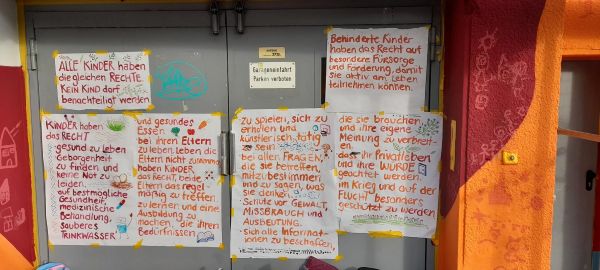 ALLE KINDER haben
die gleichen RECHTE.
KEIN KIND darf
benachteiligt werden
Garageneinfahrt
Parken verboten
Behinderte Kinder
haben das Recht auf
besondere Fürsorge
und Förderung, damit
sie aktiv am Leben
teilnehmen können.
KINDER haben
das RECHT
gesund zu Leben
Geborgenheit
zu finden und
keine Not zu
leiden.
auf bestmögliche
Gesundheit,
medizinische
Behandlung,
sauberes
TRINKWASSER
und gesundes
Essen.
bei ihren Eltern
zu leben. Leben die
Eltern nicht zusammen
haben KINDER
das RECHT, beide
Eltern das regel-
mäßig zu treffen.
zu lernen und eine
Ausbildung zu
machen, die ihren
Bedürfnissen
zu spielen, sich zu
erholen und
künstlerisch tätig
zu sein
bei allen FRAGEN,
die sie betreffen,
mitzubestimmen
und zu sagen, was
sie denken.
Schutz vor GEWALT,
MISSBRAUCH und
AUSBEUTUNG.
sich alle Informat
ionen zu beschaffen,
die sie brauchen,
und ihre eigene
Meinung zu verbreit-
en.
dass ihr Privatleben
und ihre WÜRDE
geachtet werden.
im Krieg und auf der
FLUCHT besonders
geschützt zu werden